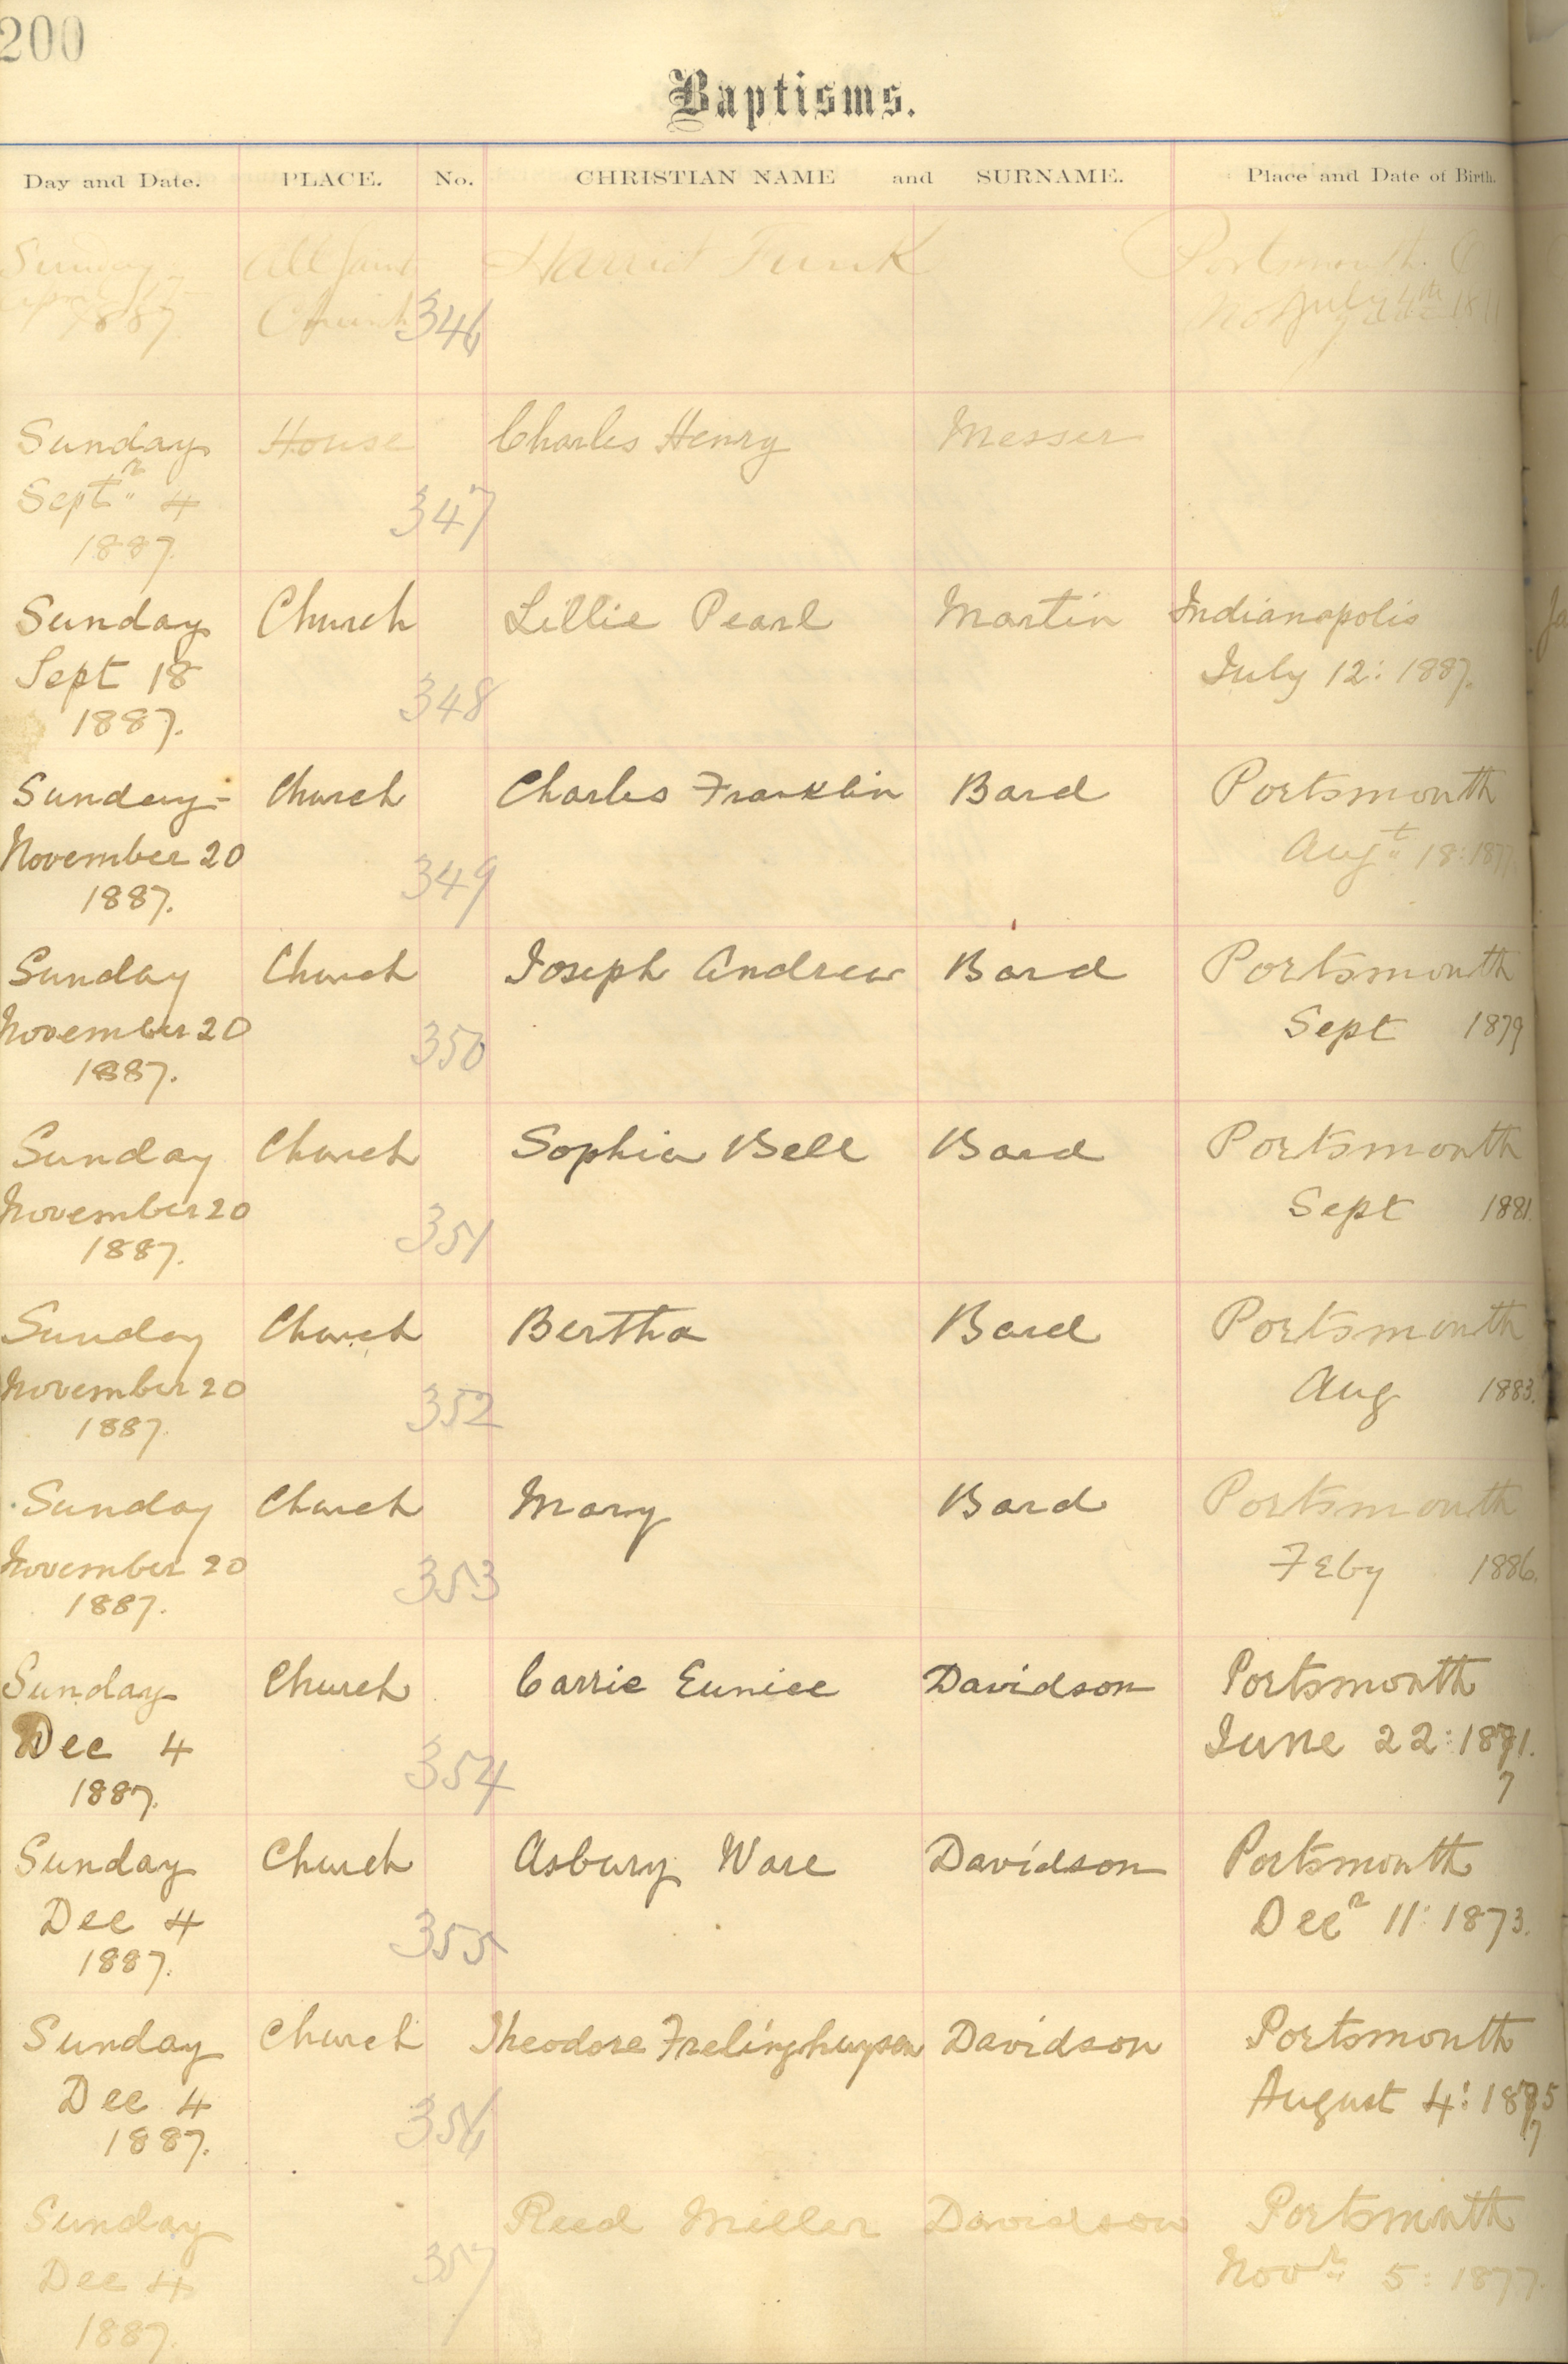 200
Baptisms.
Day and Date. PLACE. No. CHRISTIAN NAME and SURNAME. Place and Date of Birth.
Sunday All Saint Harriet Funk Portsmouth. O
April 17 Church 346 July 4th
1887
Sunday House Charles Henry Messer
Septr 4 347
1887.
Sunday Church Lillie Pearl Martin Indianapolis
Sept 18 348 July 12: 1887.
1887.
Sunday- Church Charles Franklin Bard Portsmouth
November 20 349 Augt 18:1877
1887.
Sunday Church Joseph Andrew Bard Portsmouth
November 20 350 Sept 1879
1887.
Sunday Church Sophia Bell Bard Portsmouth
November 20 351 Sept 1881.
1887.
Sunday Church Bertha Bard Portsmouth
November 20 352 Aug 1883.
1887.
Sunday Church Mary Bard Portsmouth
November 20 353 Feby 1886.
1887.
Sunday Church Carrie Eunice Davidson Portsmouth
Dec 4 354 June 22:1871.
1887. 7
Sunday Church Asbury Ware Davidson Portsmouth
Dec 4 355 Decr 11: 1873.
1887.
Sunday Church Theodore Frelinghuysen Davidson Portsmouth
Dec 4 356 August 4: 1875
1887. 7
Sunday Reed Miller Davidson Portsmouth
Dec 4 357 Novr 5: 1877.
1887.